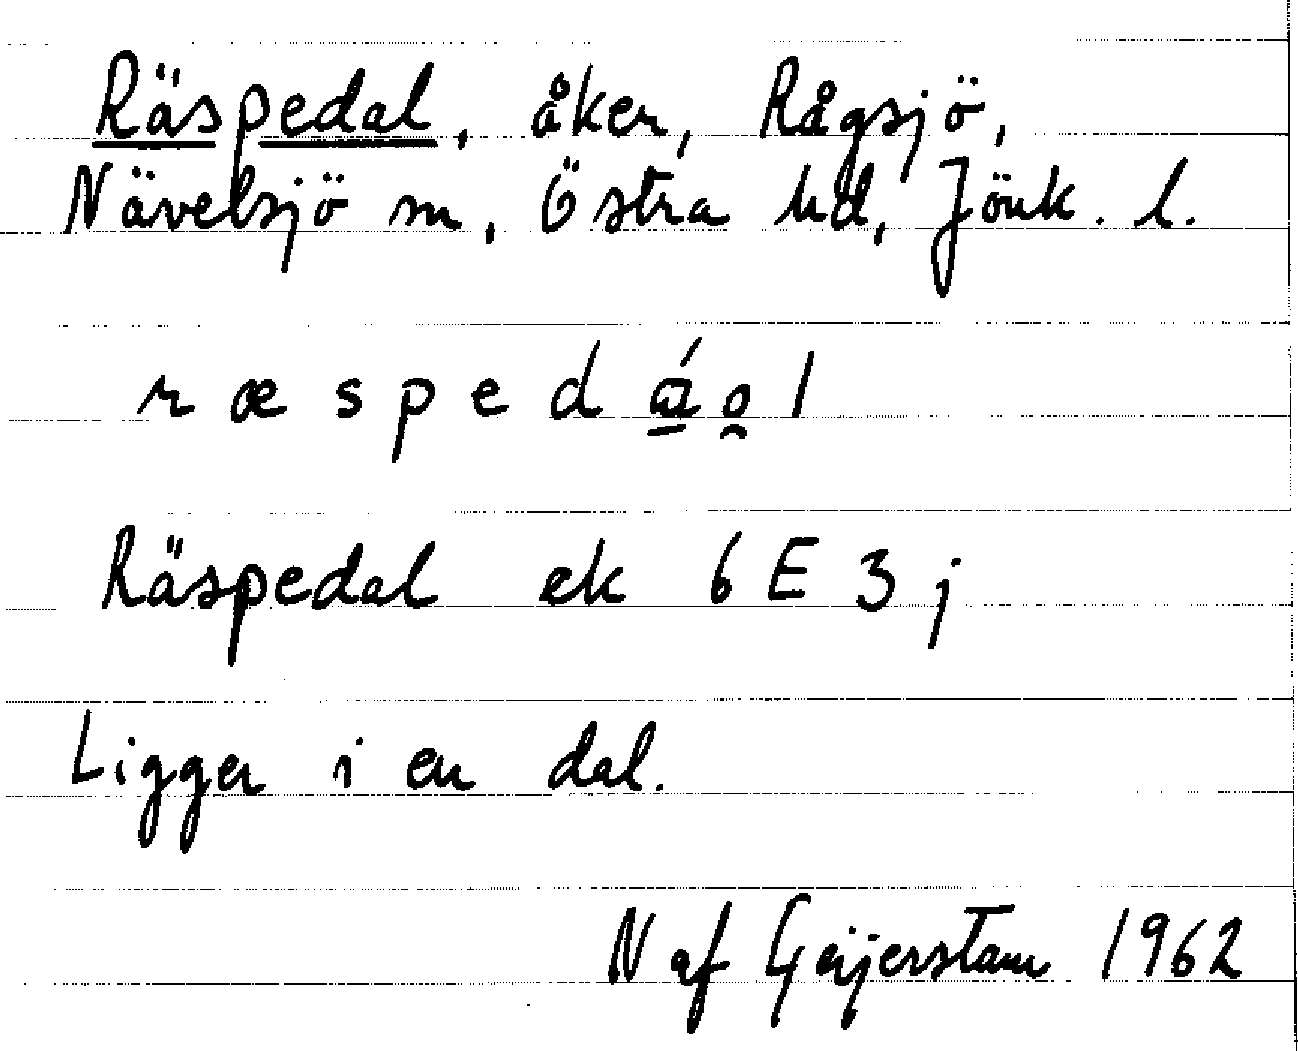 Räspedal, åker, Rågsjö,
Nävelsjö sn, Östra hd, Jönk. l.
r æ s p e d á o l
Räspedal ek 6 E 3 j
Ligger i en dal.
N af Geijerstam 1962